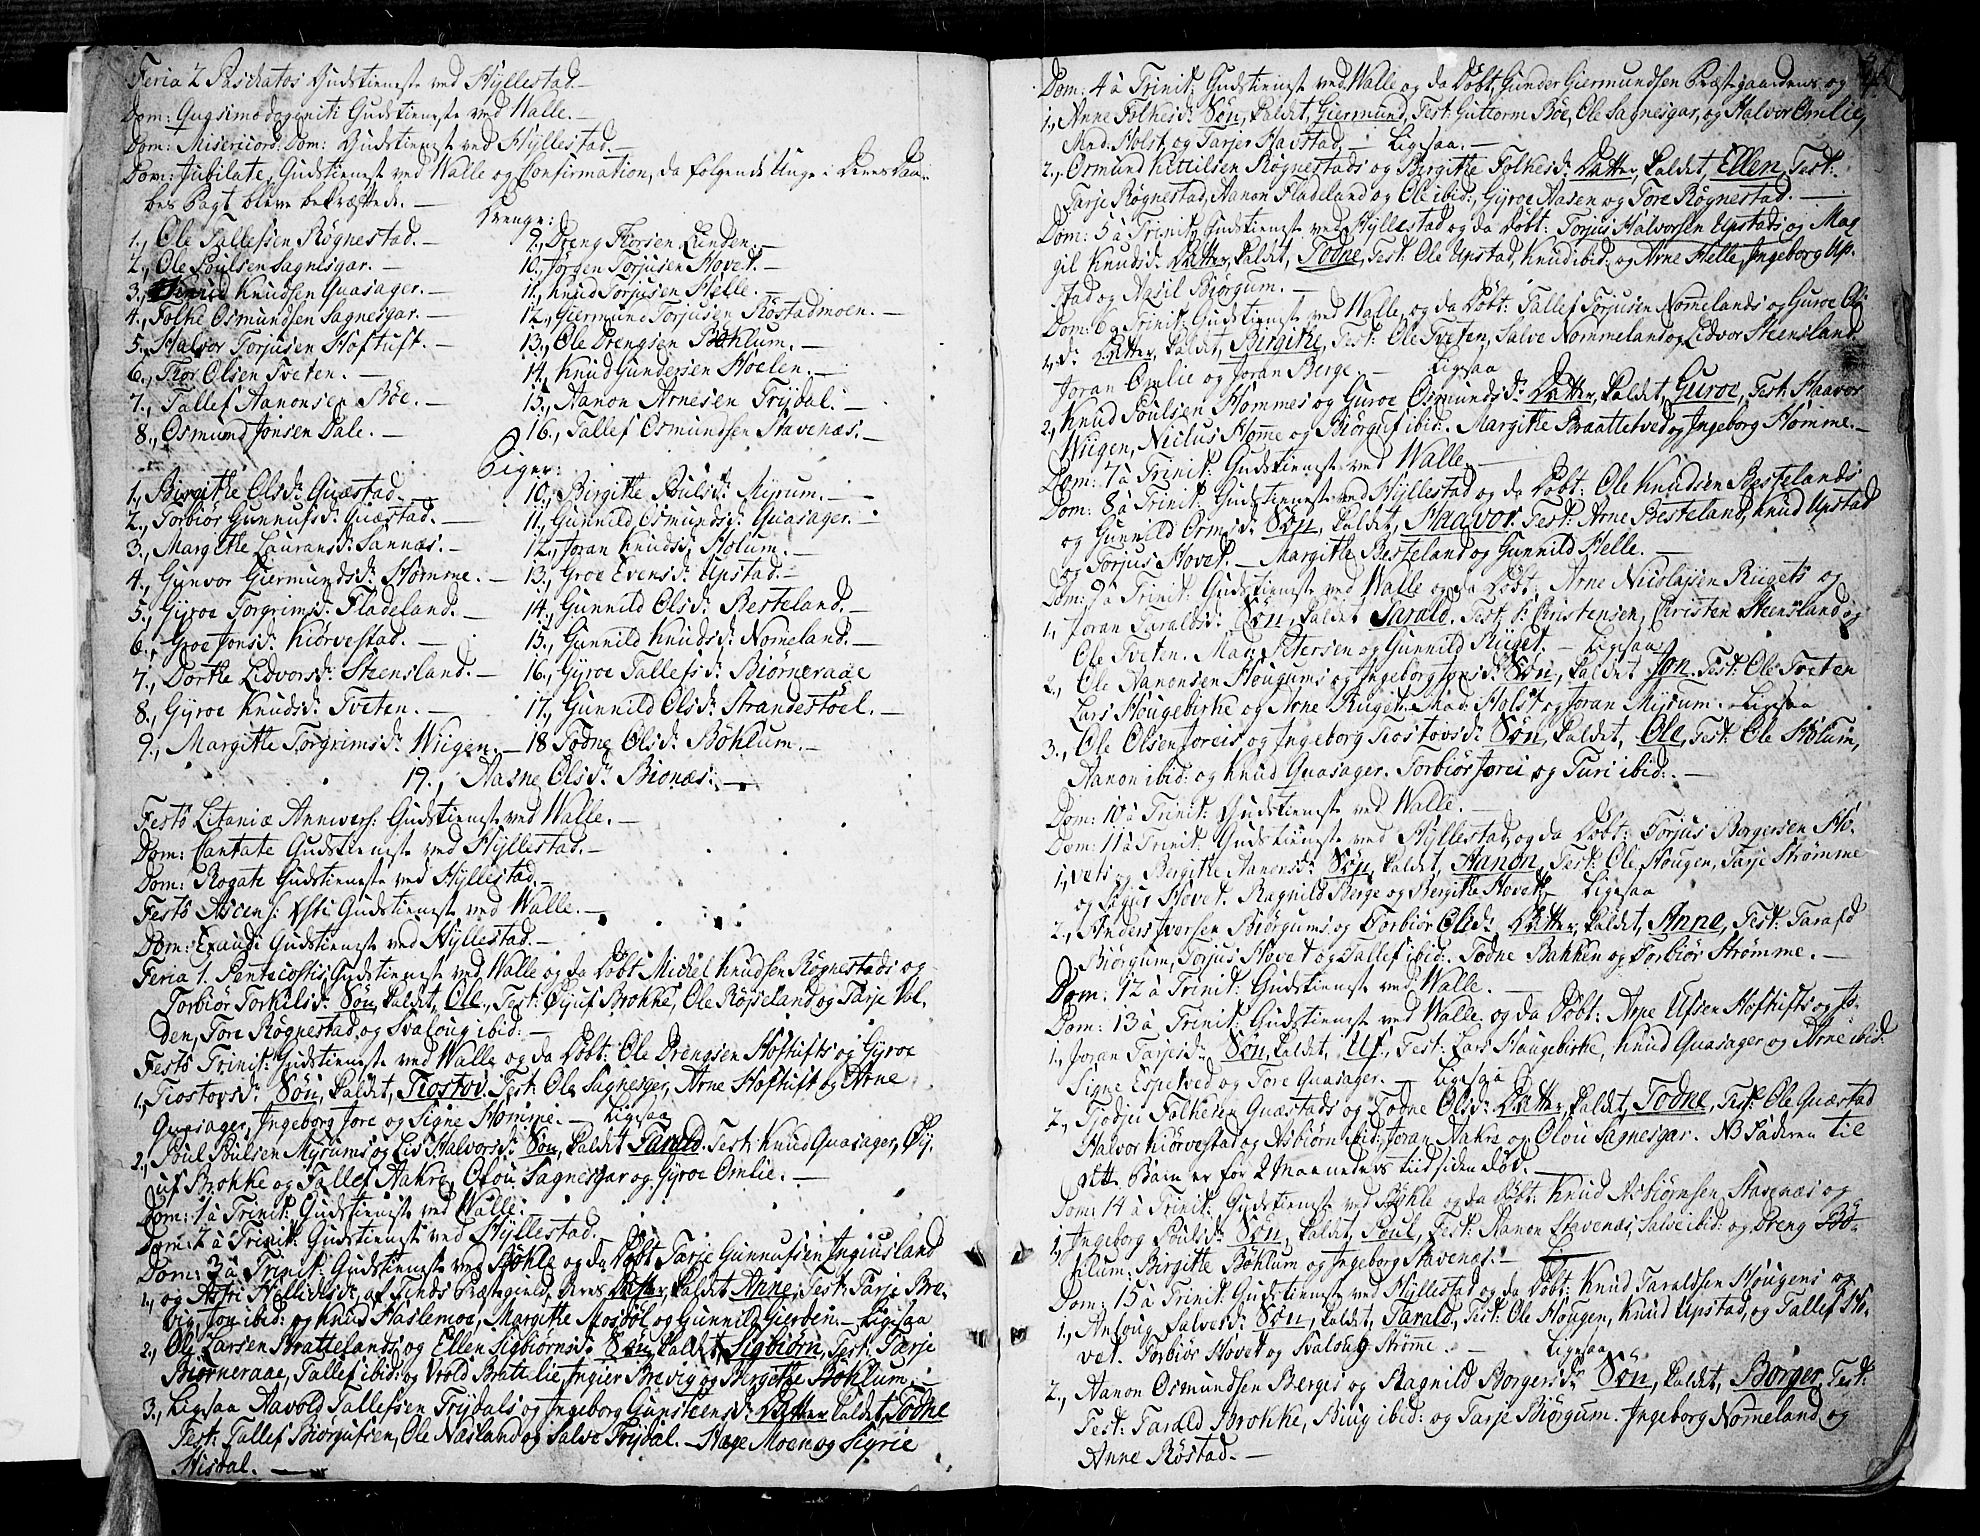 Feria 2 Paschatos Gudstieneste ved Hyllestad. —
Dom: Quasimodogeniti Gudstieneste ved Walle. —
Dom: Misericord: Dom: Gudstieneste ved Hyllestad. —
Dom: Jubilate, Gudstieneste ved Walle og Confirmation, da følgende Unge i Deres Daa-
bes Pagt bleve bekræftede. —
Drenge:
1., Ole Tallefsen Røgnestad. —
2., Ole Poulsen Sagnesgar. —
3., Knudsen Quasager. —
4., Folke Osmundsen Sagnesgar. —
5., Halvor Torjusen Hoftuft. —
6., Thor Olsen Tveten. —
7., Tallef Aanonsen Bøe. —
8., Osmund Jonsen Dale. —
9., Dreng Thorsen Lunden. —
10., Jørgen Torjusen Hovet. —
11., Knud Torjusen Helle. —
12., Giermund Torjusen Røstadmoen. —
13., Ole Drengsen Bøhlum. —
14., Knud Gundersen Hoelen. —
15., Aanon Arnesen Trijdal. —
16., Tallef Osmundsen Stavenæs. —
Piger:
1., Birgithe Olsdr: Quæstad.
2., Torbiør Gunnufsdr: Quæstad. —
3., Margithe Lauransdr: Sannæs. —
4., Gunvor Giermundsdr: Homme. —
5., Gyroe Torgrimsdr: Fladeland. —
6., Groe Jonsdr: Kiørvestad. —
7., Dorthe Lidvorsdr: Steensland. —
8., Gyroe Knudsdr: Tveten. —
9., Margithe Torgrimsdr: Wiigen. —
10., Birgithe Poulsdr: Myrum. —
11., Gunnild Osmundsdr: Quasager. —
12., Joran Knudsdr: Holum. —
13., Groe Evensdr: Upstad. —
14., Gunnild Olsdr: Besteland. —
15., Gunnild Knudsdr: Nomeland. —
16., Gyroe Tallefsdr: Biørneraae
17., Gunnild Olsdr: Strandestøel. —
18 Todne Olsdr: Bøhlum. —
19., Aasne Olsdr: Bionæs. —
Festo Litaniæ Annivers: Gudstieneste ved Walle. —
Dom: Cantate Gudstieneste ved Hyllestad. —
Dom: Rogate Gudstieneste ved Hyllestad. —
Festo Ascens: Xsti Gudstieneste ved Walle. —
Dom: Exaudi Gudstieneste ved Hyllestad. —
Feria 1. Pentecostis Gudstieneste ved Walle og da Døbt Michel Knudsen Røgnestads og
Torbiør Torkilsdr: Søn, kaldet, Ole., Test: Brokke, Ole Røjseland og Tarje Val-
den, Tore Røgnestad og Svaloug ibid: —
Festo Trinit: Gudstieneste ved Walle og da Døbt: Ole Drengsen Hoftufts og Gyroe
1., Tiostovsdr: Søn, kaldet, Tiostov. Test: Ole Sagnesgar, Arne Hoftuft og Arne
Quasager, Ingeborg Jore og Signe Homme. — Ligesaa
2., Poul Poulsen Myrums og Liv Halvorsdr: Søn, kaldet Tarald. Test: Knud Quasager, Øij-
uf Brokke og Tallef Aakre, Olou Sagnesgar og Gyroe Omlie. —
Dom: 1 à Trinit: Gudstieneste ved Walle. —
Dom: 2 à Trinit: Gudstieneste ved Hyllestad.
Dom: 3 à Trinit: Gudstieneste ved Bykle og da Døbt Tarje Gunnufsen Ingiusland
1., og Asbri af Tinds Præstegield, Deres Datter, kaldet Anne, Test: Tarje Bre-
vig, Jon ibid: og Knud Haslemoe, Margithe Mosdøl og Gunnild Gierden. — Ligesaa
2., Ole Larsen Brattelands og Ellen Sigbiørnsdr: Søn, kaldet, Sigbiørn, Test: Tarje
Biørneraae, Tallef ibid: og Wrold Brattelie, Ingier Brevig og Birgithe Bøhlum. —
3., Ligesaa Aavold Tallefsen Trijdals og Ingeborg Gunsteensdr: Datter kaldet, Todne
Test: Tallef Biørgufsen, Ole Næsland og Salve Trijdal. — Hage Moen og Sigrie
Nisdal. —
Dom: 4 à Trinit: Gudstieneste ved Walle og da Døbt, Gunder Giermundsen Præstegaardens og
1., Anne Folkesdr: Søn, kaldet, Giermund, Test: Guttorm Bøe, Ole Sagnesgar, og Halvor Omlie,
Mad: Holst, og Tarjer Harstad. — Ligesaa. —
2., Osmund Kittilsen Røgnestads og Birgithe Folkesdr: Datter, kaldet, Ellen, Test:
Tarje Røgnestad, Aanon Fladeland og Ole ibid:, Gyroe Aasen og Tore Røgnestad. —
Dom: 5 à Trinit: Gudstieneste ved Hyllestad og da Døbt: Torjus Halvorsen Upstads og Mar-
git Knudsdr: Datter, kaldet, Todne, Test: Ole Upstad, Knud ibid: og Arne Helle, Ingeborg Up-
stad og Aasil Biørgum. —
Dom: 6 à Trinit: Gudstieneste ved Walle, og da Døbt: Tallef Torjusen Nomelands og Guroe Ole
1., dr: Datter, kaldet, Birgithe, Test: Ole Tveten, Salve Nommeland og Lidvor Steensland
Joran Omlie og Joran Berge. — Ligesaa
2., Knud Poulsen Hommes og Guroe Osmundsdr: Datter, kaldet, Guroe, Test: Haavor
Wiigen, Niclus Homme og Biørguf ibid:. Margithe Braattetved og Ingeborg Homme. —
Dom: 7 à Trinit: Gudstieneste ved Walle. —
Dom: 8 à Trinit: Gudstieneste ved Hyllestad og da Døbt: Ole Knudsen Bestelands
og Gunnild Ormsdr: Søn, kaldet, Haavor. Test: Arne Besteland, Knud Upstad
og Torjus Hovet. — Margithe Besteland og Gunnild Helle. —
Dom: 9 à Trinit: Gudstieneste ved Walle og da Døbt, Arne Nicolajsen Rygets og
1., Joran Taraldsdr: Søn, kaldet Tarald. Test: P: Christensen, Christen Steensland og
Ole Tveten. Mad: Petersen og Gunnild Ryget. — Ligesaa
2., Ole Aanonsen Hougums og Ingeborg Jonsdr: Søn, kaldet Jon. Test: Ole Tveten
Lars Hougebirke og Arne Ryget. Mad: Holst og Joran Myrum. — Ligesaa
3., Ole Olsen Joreis og Ingeborg Tiostovsdr: Søn, kaldet, Ole, Test: Ole Holum,
Aanon ibid: og Knud Quasager. Torbiør Jorei og Turi ibid:. —
Dom: 10 à Trinit: Gudstieneste ved Walle. —
Dom: 11 à Trinit: Gudstieneste ved Hyllestad, og da Døbt: Torjus Borgersen Ho-
1., vets og Bergithe Aanonsdr: Søn, kaldet, Aanon, Test: Ole Hougen, Tarje Strømme
og Hovet. Ragnild Berge og Bergithe Hovet. — Ligesaa
2., Anders Iversen Biørgums og Torbiør Olsdr: Datter, kaldet, Anne, Test: Tarald
Biørgum, Torjus Hovet og Tallef ibid:. Todne Bakken og Torbiør Strømme. —
Dom: 12 à Trinit: Gudstieneste ved Walle. —
Dom: 13 à Trinit: Gudstieneste ved Walle og da Døbt: Arne Ufsen Hoftufts og
1., Joran Tarjesdr: Søn, kaldet, Uf., Test: Lars Haugebirke, Knud Quasager og Arne ibid:
Signe Espetved og Tore Quasager. — Ligesaa
2., Folkesen Quæstads og Todne Olsdr: Datter, kaldet, Todne, Test: Ole Quæstad
Halvor Kiørvestad og Asbiørn ibid: Joran Aakre og Olou Sagnesgar. NB Faderen til
dette Barn er for 2 Maaneders tiid siden død. —
Dom: 14 à Trinit: Gudstieneste ved Bykle og da Døbt: Knud Asbiørnsen Stavenæs og
1., Ingeborg Poulsdr: Søn, kaldet, Poul, Test: Aanon Stavenæs, Salve ibid: og Dreng Bø-
hlum: Birgithe Bøhlum og Ingeborg Stavenæs. —
Dom: 15 à Trinit: Gudstieneste ved Hyllestad og da Døbt: Knud Taraldsen Hougens og
1., Anloug Salvesdr: Søn, kaldet, Tarald., Test: Ole Hougen, Knud Upstad, og Tallef Ho-
vet. Torbiør Hovet og Svaloug Strøme. — Ligesaa
2., Aanon Osmundsen Berges og Ragnild Borgersdr: Søn, kaldet, Borger, Test:
Test: Tarald Brokke, Biug ibid: og Tarje Biørgum. Ingeborg Nomeland og
Anne Røstad. —